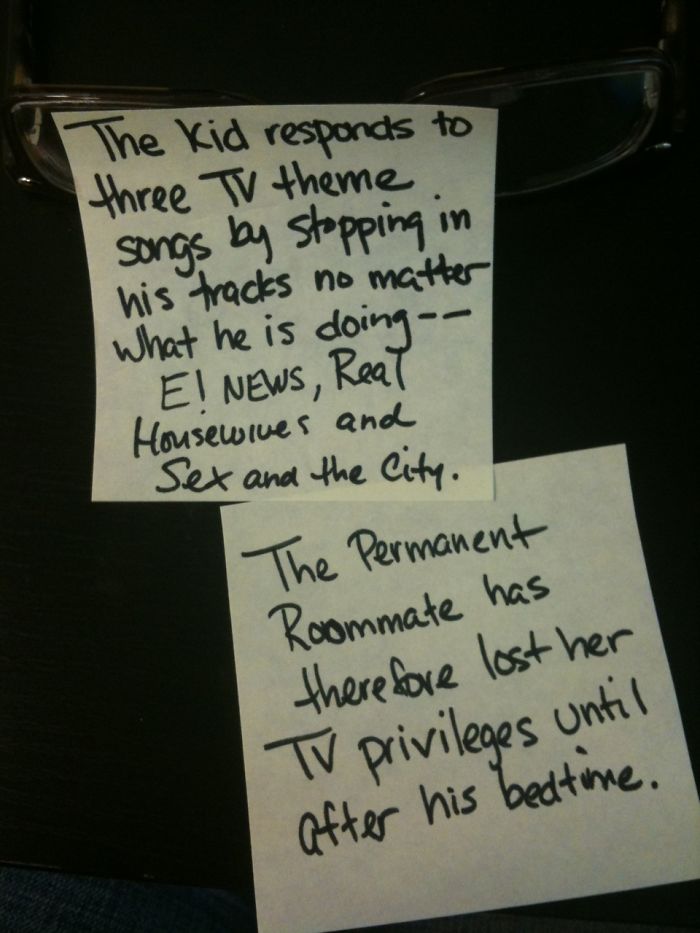 The kid responds to
three TV theme
songs by stopping in
his tracks no matter
what he is doing--
E! NEWS, Real
Housewives and
Sex and the City.
The Permanent
Roommate has
therefore lost her
TV privileges until
after his bedtime.